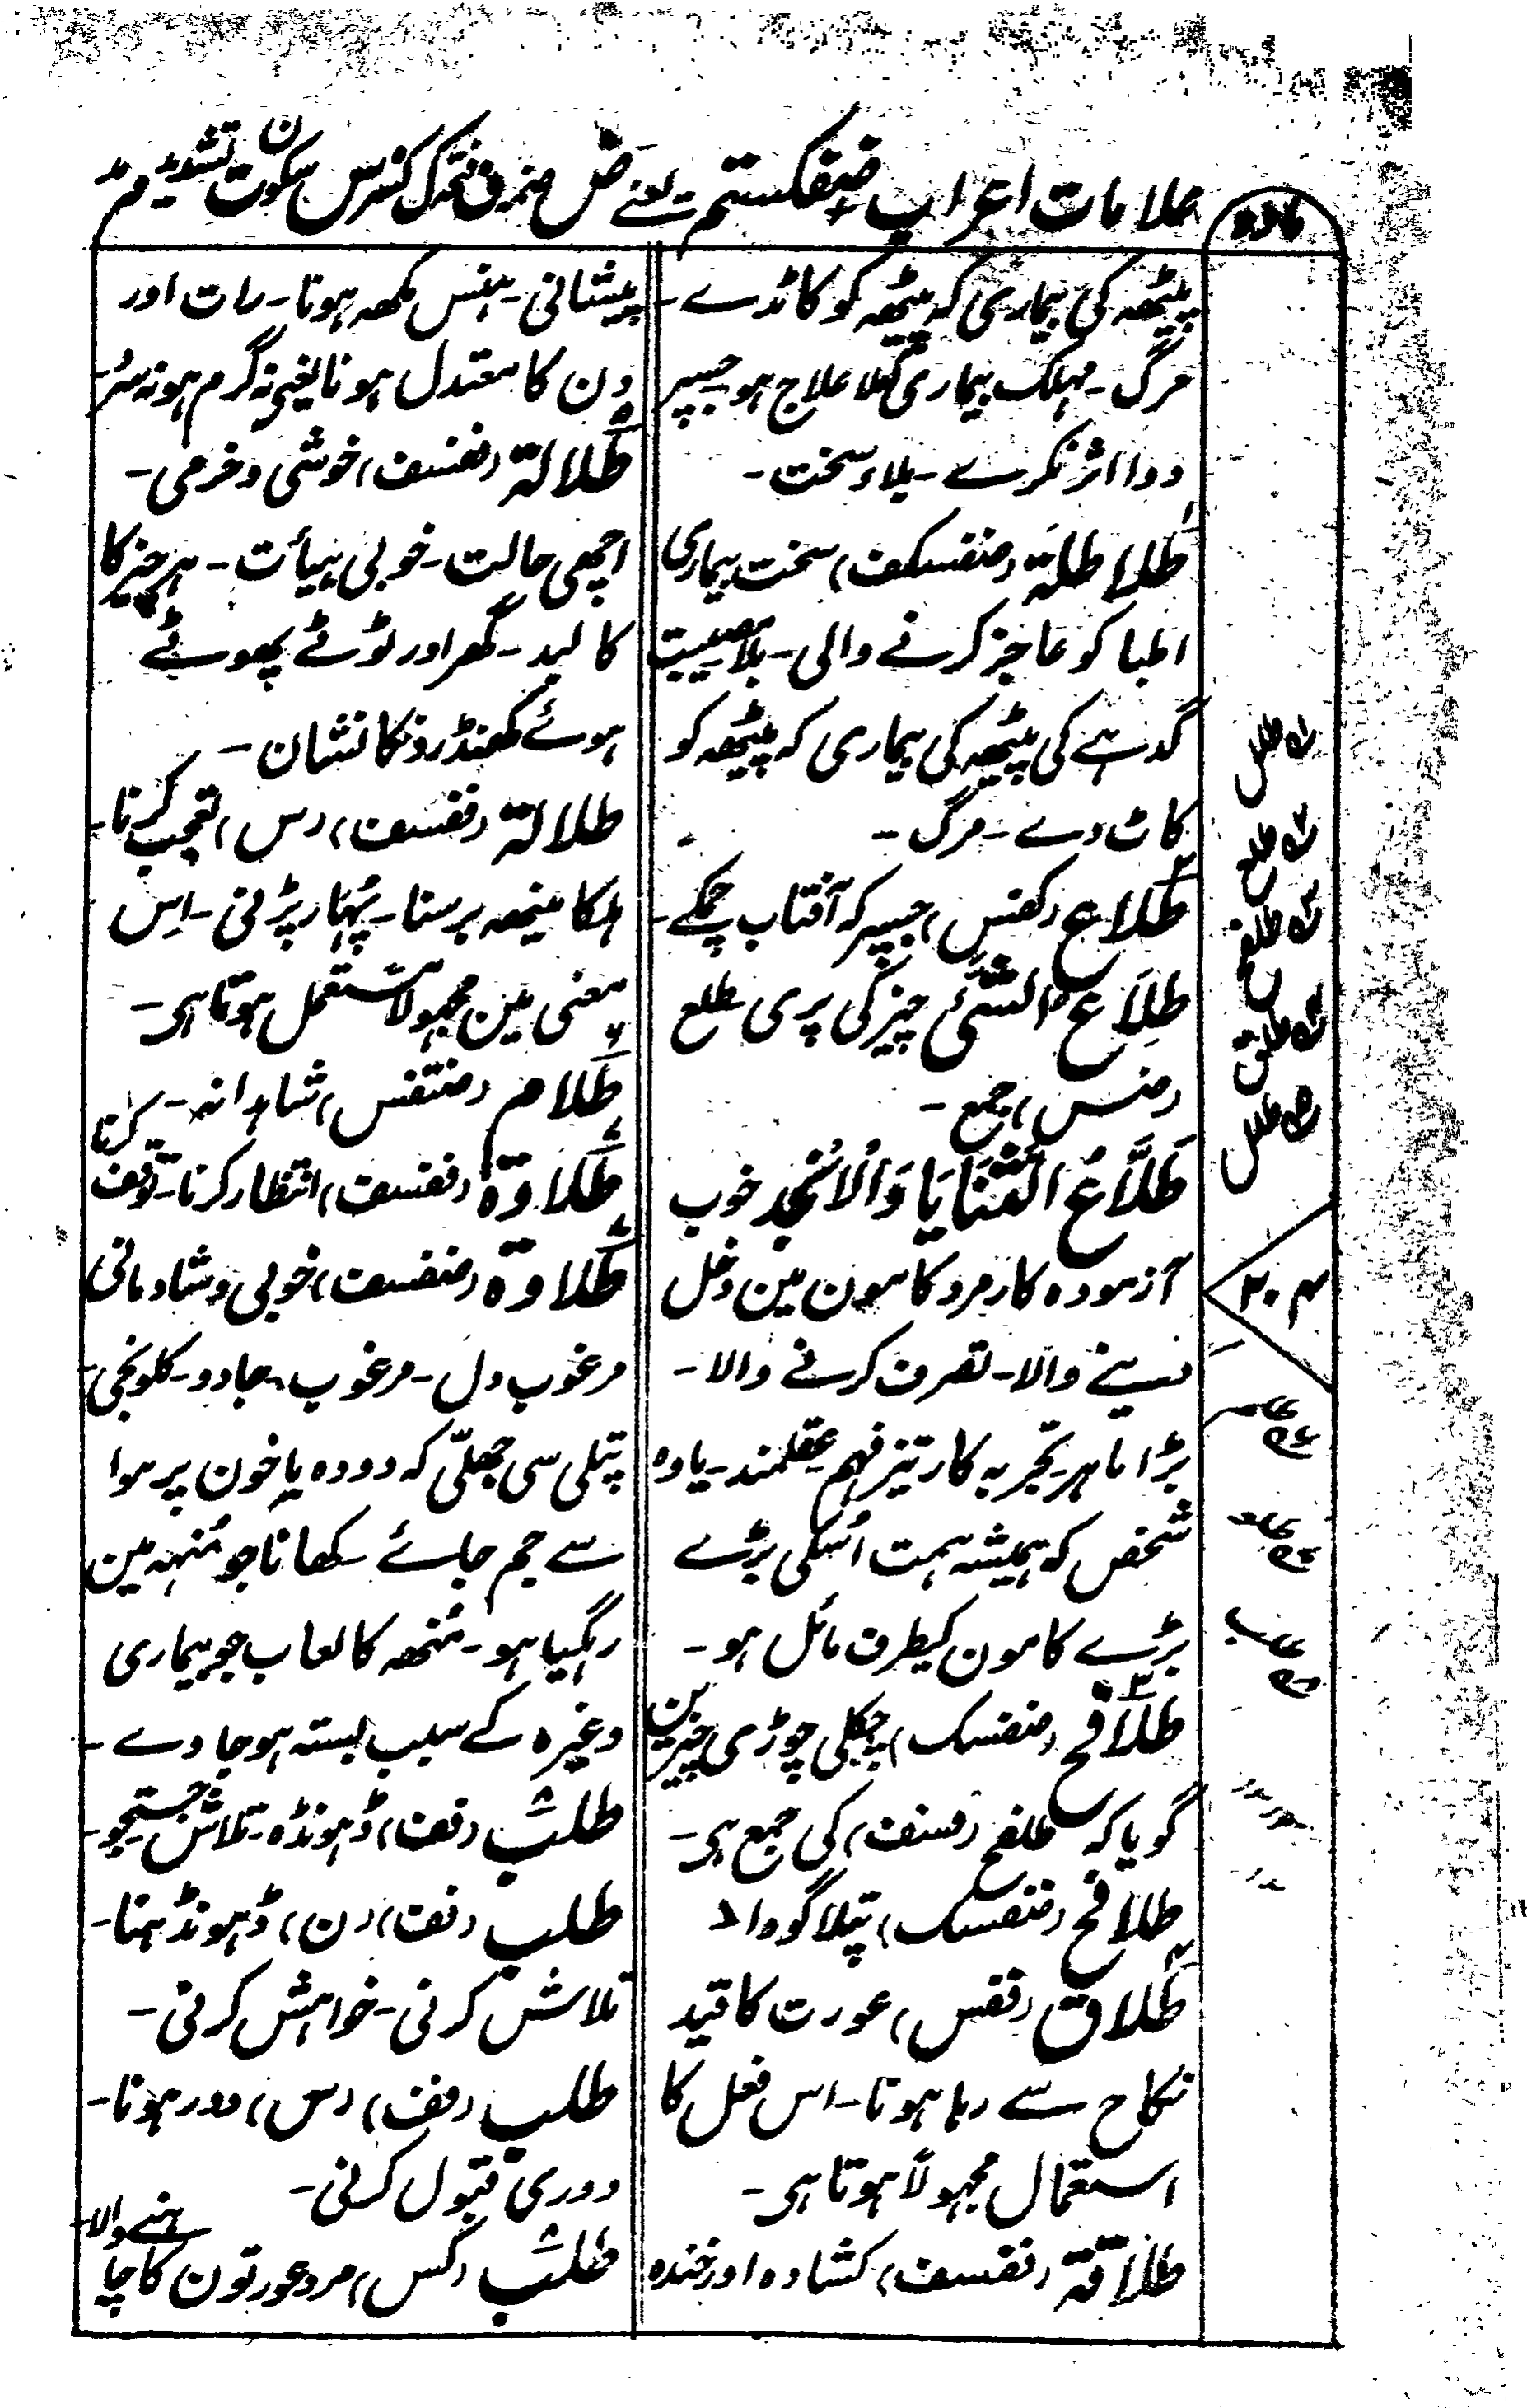 علامات اعراب ضفکستم یعنے ض ضمہ ف فتحہ ک کسرہ س سکون ت تشدید م مد
مادہ
پیٹھہ کی بیماری کہ پیٹھہ کو کاٹدے ۔
مرگ ۔ مہلک بیماری لا علاج ہو جسپر
دوا اثر نکرے ۔ بلاء سخت ۔
طُلَاطِلَۃ (ضفسکف) سخت بیماری
اطبا کو عاجز کرنے والی ۔ بلا مصیبت
گدہے کی پیٹھہ کی بیماری کہ پیٹھہ کو
کاٹ دے ۔ مرگ ۔
طِلَاع (کفس) جسپر کہ آفتاب چمکے ۔
طِلَاعُ الشَّیٔ چیز کی پری طلع
(ضس) جمع ۔
طَلَّاعُ الثَّنَایَا وَالْاَنْجُد خوب
آزمودہ کار مرد کامون مین دخل
دینے والا ۔ تصرف کرنے والا ۔
بڑا ماہر تجربہ کار تیز فہم عقلمند ۔ یا وہ
شخص کہ ہمیشہ ہمت اُسکی بڑے
بڑے کامون کیطرف مائل ہو ۔
طَلَافِح (ضفسک) چکلی چوڑی چیزین
گویا کہ طلفح (فسف) کی جمع ہی ۔
طلافح (ضفسک) پتلا گوہ ۱۲
طَلَاق (ففس) عورت کا قید
نکاح سے رہا ہونا ۔ اس فعل کا
استعمال مجہولاً ہوتا ہی ۔
طَلَاقَۃ (ففسف) کشادہ اور خندہ
پیشانی ۔ ہنس مکھہ ہونا ۔ رات اور
دن کا معتدل ہونا یعنی نہ گرم ہو نہ سرد
طَلَالۃ (ففسف) خوشی و خرمی ۔
اچھی حالت ۔ خوبی ہیأت ۔ ہر چیز کا
کالبد ۔ گھر اور ٹوٹے پھوٹے
ہوئے کھنڈرونکا نشان ۔
طلالۃ (ففسف) (س) تعجب کرنا ۔
ہلکا مینھہ برسنا ۔ پُہار پڑنی ۔ اِس
معنی مین مجہولاً مستعمل ہوتا ہی ۔
طُلَّام (ضتفس) شاہدانہ ۔
طَلَاوۃ (ففسف) انتظار کرنا ۔ توقف کرنا
طُلَاوۃ (ضفسف) خوبی و شادمانی
مرغوب دل ۔ مرغوب ۔ جادو ۔ کلونجی ۔
پتلی سی جھلّی کہ دودہ یا خون پر ہوا
سے جم جائے کھانا جو مُنہہ مین
رہگیا ہو ۔ مُنھہ کا لعاب جو بیماری
وغیرہ کے سبب بستہ ہو جاوے ۔
طلب (فف) ڈہونڈہ ۔ تلاش جستجو ۔
طلب (فف) (ن) ڈہونڈہنا ۔
تلاش کرنی ۔ خواہش کرنی ۔
طلب (فف) (س) دور ہونا ۔
دوری قبول کرنی ۔
طلب (کس) مرد عورتون کا چاہنے والا
طلل
طلع
طلفح
طلق
طلل